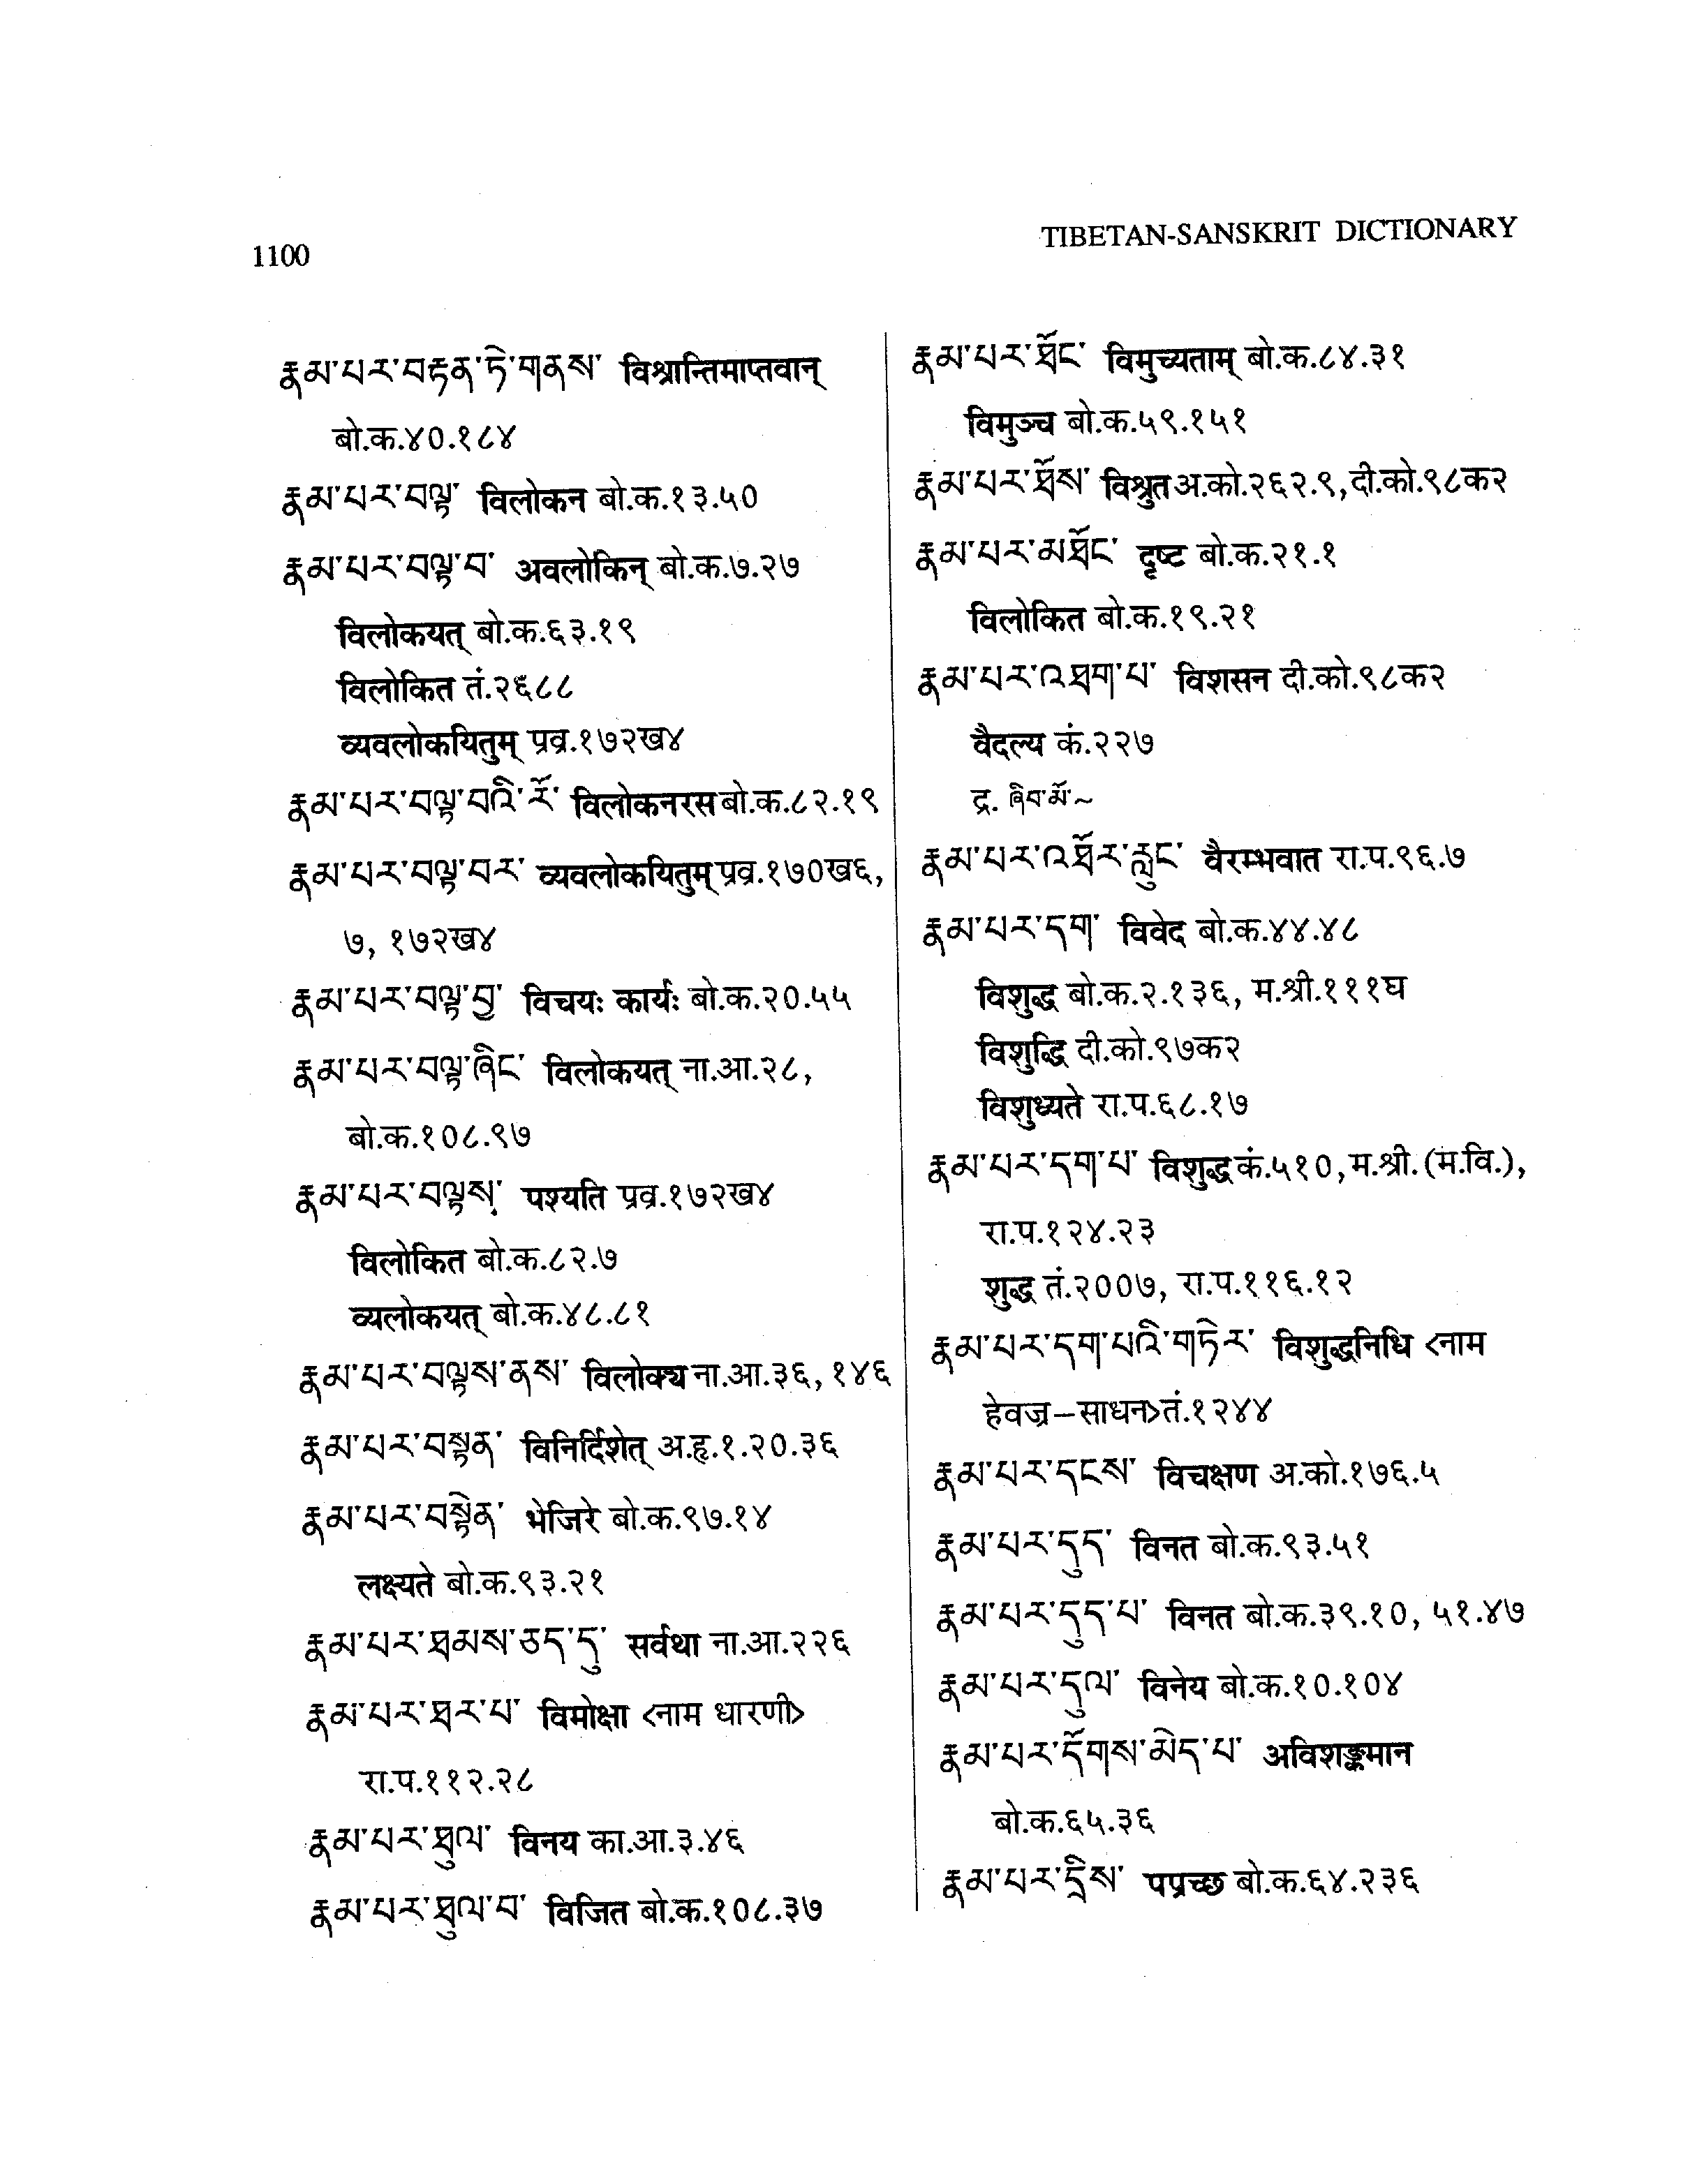 1100
TIBETAN-SANSKRIT DICTIONARY
རྣམ་པར་བརྟན་ཏེ་གནས་ विश्रान्तिमाप्तवान्
बो.क.४०.१८४
རྣམ་པར་བལྟ་ विलोकन बो.क.१३.५०
རྣམ་པར་བལྟ་བ་ अवलोकिन् बो.क.७.२७
विलोकयत् बो.क.६३.१९
विलोकित तं.२६८८
व्यवलोकयितुम् प्रव्र.१७२ख४
རྣམ་པར་བལྟ་བའི་རོ་ विलोकनरस बो.क.८२.१९
རྣམ་པར་བལྟ་བར་ व्यवलोकयितुम् प्रव्र.१७०ख६,
७, १७२ख४
རྣམ་པར་བལྟ་བྱ་ विचयः कार्यः बो.क.२०.५५
རྣམ་པར་བལྟ་ཞིང་ विलोकयत् ना.आ.२८,
बो.क.१०८.९७
རྣམ་པར་བལྟས་ पश्यति प्रव्र.१७२ख४
विलोकित बो.क.८२.७
व्यलोकयत् बो.क.४८.८१
རྣམ་པར་བལྟས་ནས་ विलोक्य ना.आ.३६, १४६
རྣམ་པར་བསྟན་ विनिर्दिशेत् अ.हृ.१.२०.३६
རྣམ་པར་བསྟེན་ भेजिरे बो.क.९७.१४
लक्ष्यते बो.क.९३.२१
རྣམ་པར་ཐམས་ཅད་དུ་ सर्वथा ना.आ.२२६
རྣམ་པར་ཐར་པ་ विमोक्षा <नाम धारणी>
रा.प.११२.२८
རྣམ་པར་ཐུལ་ विनय का.आ.३.४६
རྣམ་པར་ཐུལ་བ་ विजित बो.क.१०८.३७
རྣམ་པར་ཐོང་ विमुच्यताम् बो.क.८४.३१
विमुञ्च बो.क.५९.१५१
རྣམ་པར་ཐོས་ विश्रुत अ.को.२६२.९, दी.को.९८क२
རྣམ་པར་མཐོང་ दृष्ट बो.क.२१.१
विलोकित बो.क.१९.२१
རྣམ་པར་འཐག་པ་ विशसन दी.को.९८क२
वैदल्य कं.२२७
द्र. ཞིབ་མོ་~
རྣམ་པར་འཐོར་རླུང་ वैरम्भवात रा.प.९६.७
རྣམ་པར་དག་ विवेद बो.क.४४.४८
विशुद्ध बो.क.२.१३६, म.श्री.१११घ
विशुद्धि दी.को.९७क२
विशुध्यते रा.प.६८.१७
རྣམ་པར་དག་པ་ विशुद्ध कं.५१०, म.श्री. (म.वि.),
रा.प.१२४.२३
शुद्ध तं.२००७, रा.प.११६.१२
རྣམ་པར་དག་པའི་གཏེར་ विशुद्धनिधि <नाम
हेवज्र–साधन> तं.१२४४
རྣམ་པར་དངས་ विचक्षण अ.को.१७६.५
རྣམ་པར་དུད་ विनत बो.क.९३.५१
རྣམ་པར་དུད་པ་ विनत बो.क.३९.१०, ५१.४७
རྣམ་པར་དུལ་ विनेय बो.क.१०.१०४
རྣམ་པར་དོགས་མེད་པ་ अविशङ्कमान
बो.क.६५.३६
རྣམ་པར་དྲིས་ पप्रच्छ बो.क.६४.२३६